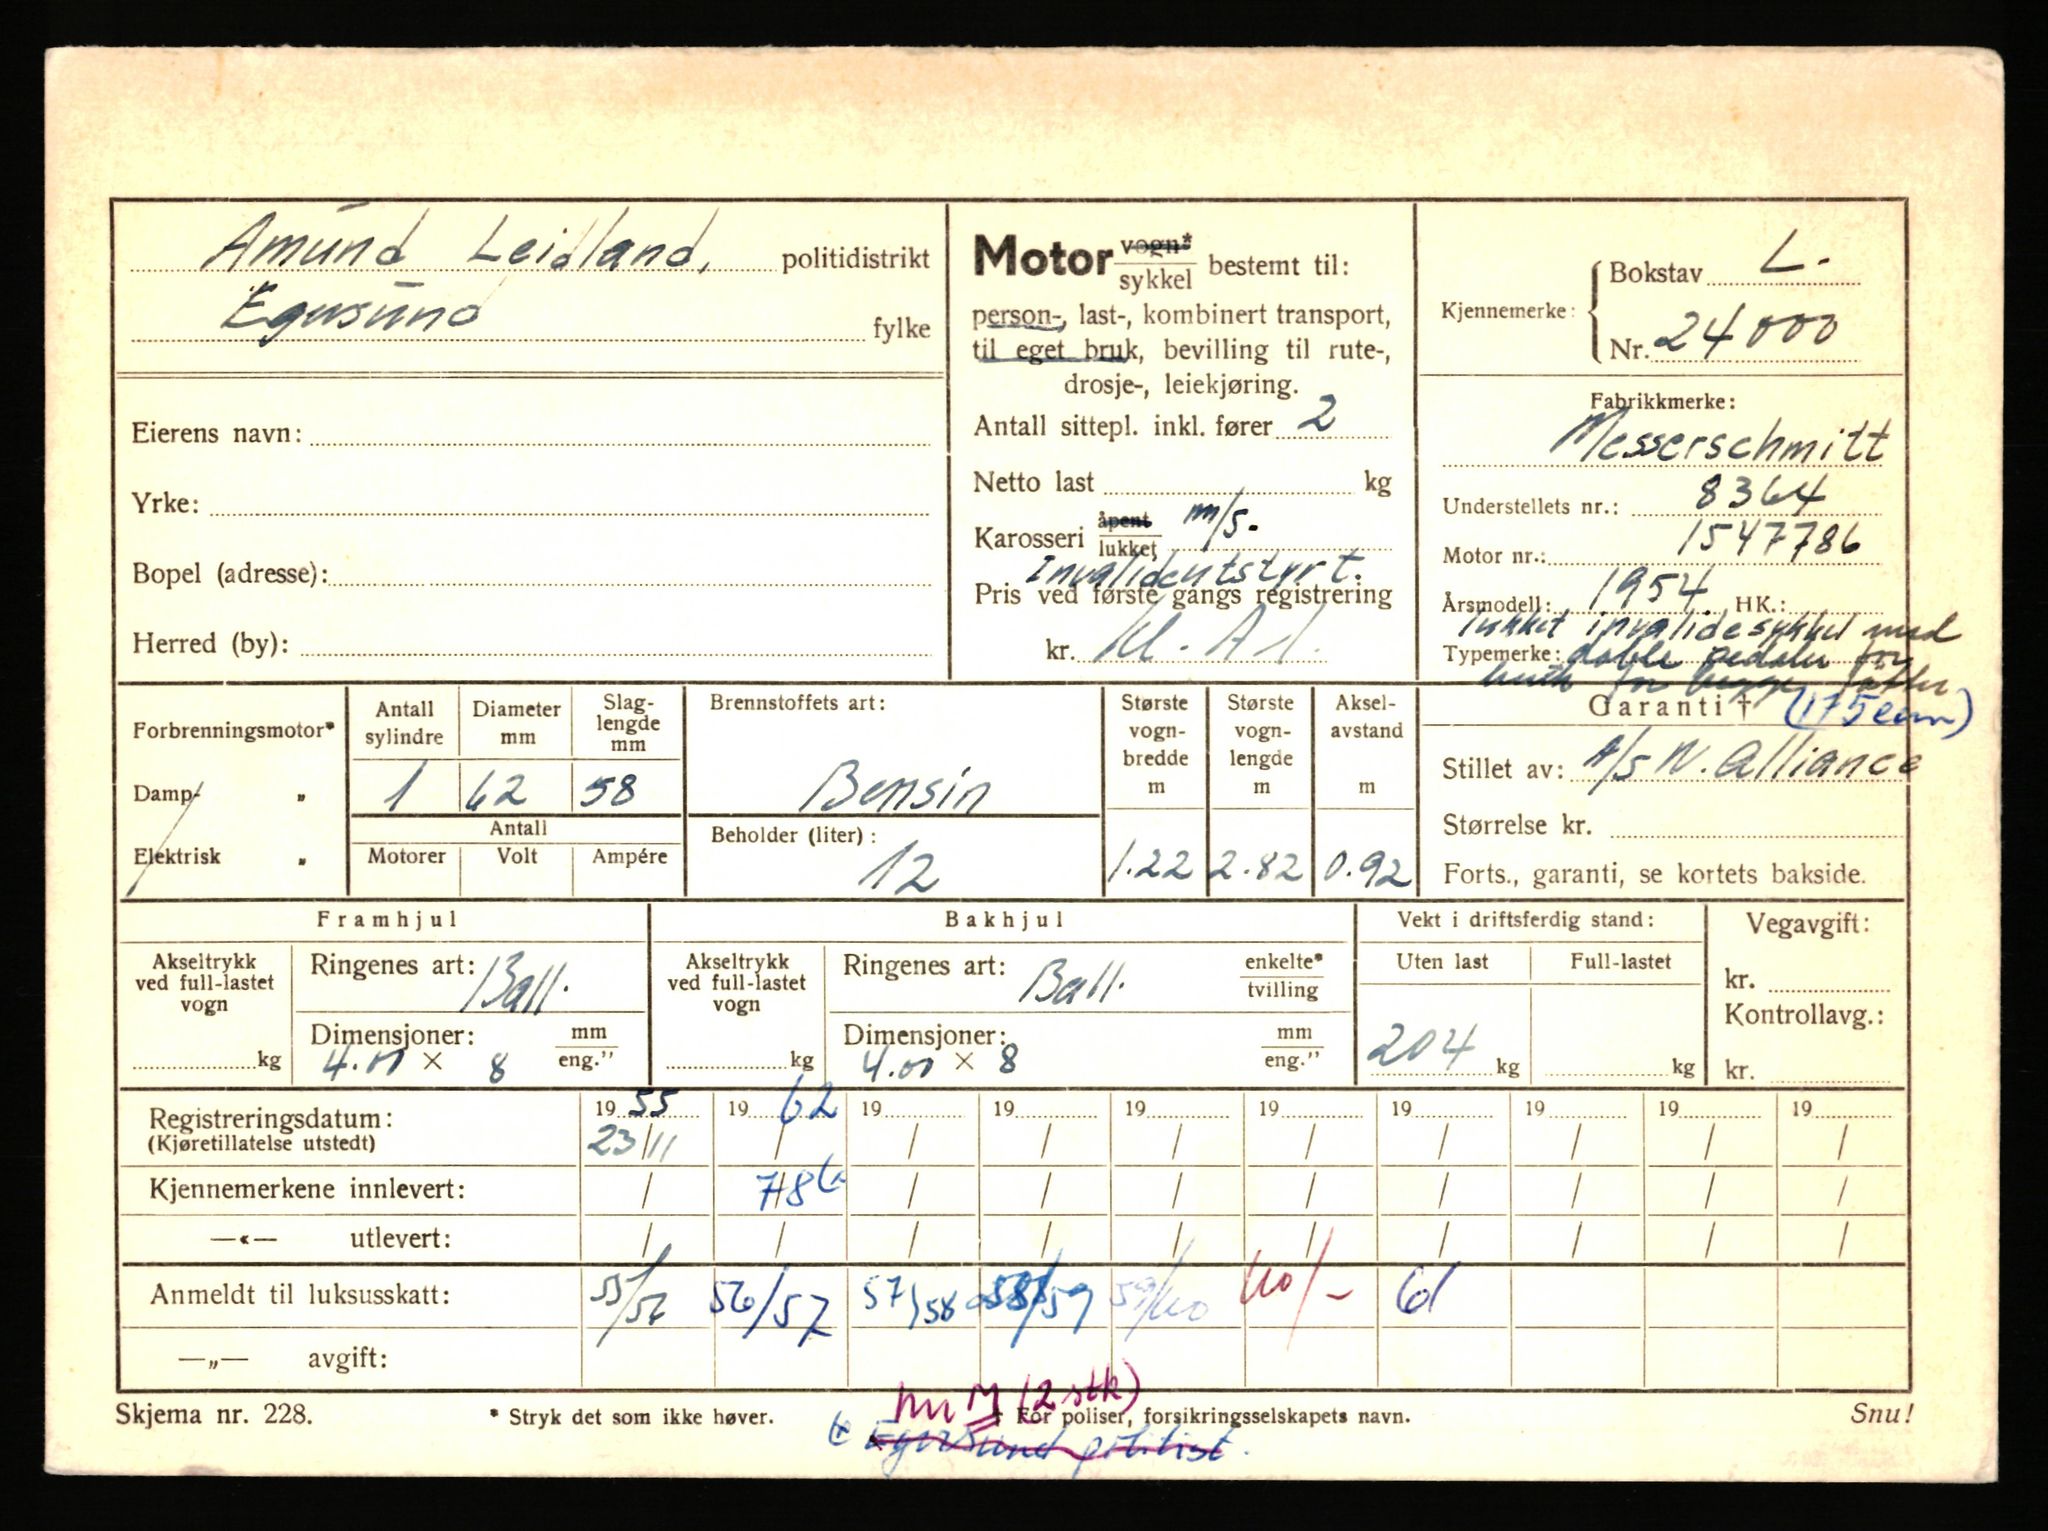 Amund Leidland, politidistrikt
Egersund fylke
Eierens navn:
Yrke:
Bopel (adresse):
Herred (by):
Motor vogn* / sykkel bestemt til:
person-, last-, kombinert transport,
til eget bruk, bevilling til rute-,
drosje-, leiekjøring.
Antall sittepl. inkl. fører 2
Netto last kg
Karosseri åpent / lukket m/s.
Invalideutstyrt.
Pris ved første gangs registrering
kr. kl. A 1.
Kjennemerke: Bokstav L.
Nr. 24000
Fabrikkmerke:
Messerschmitt
Understellets nr.: 8364
Motor nr.: 1547786
Årsmodell: 1954. HK.:
lukket invalidesykkel med
Typemerke: doble pedaler for
for begge
Garanti † (175 ccm)
Stillet av: A/S N. Alliance
Størrelse kr.
Forts., garanti, se kortets bakside.
Forbrenningsmotor*
Damp- „
Elektrisk „
Antall sylindre 1
Diameter mm 62
Slag-lengde mm 58
Antall
Motorer Volt Ampére
Brennstoffets art:
Bensin
Beholder (liter):
12
Største vogn-bredde m 1.22
Største vogn-lengde m 2.82
Aksel-avstand m 0.92
Framhjul
Akseltrykk ved full-lastet vogn
kg
Ringenes art: Ball.
Dimensjoner: mm / eng."
4.00 × 8
Bakhjul
Akseltrykk ved full-lastet vogn
kg
Ringenes art: Ball. enkelte* / tvilling
Dimensjoner: mm / eng."
4.00 × 8
Vekt i driftsferdig stand:
Uten last Full-lastet
204 kg kg
Vegavgift:
kr.
Kontrollavg.:
kr.
Registreringsdatum: 19 55 19 62 19 19 19 19 19 19 19 19
(Kjøretillatelse utstedt) 23/11 / / / / / / / / /
Kjennemerkene innlevert: / 7/8 / / / / / / / /
—«— utlevert: / / / / / / / / / /
Anmeldt til luksusskatt: 55/56 56/57 57/58 58/59 59/60 60/- 61
—„— avgift:
Skjema nr. 228. * Stryk det som ikke høver. † For poliser, forsikringsselskapets navn. Snu!
M (2 stk)
Egersund politist.